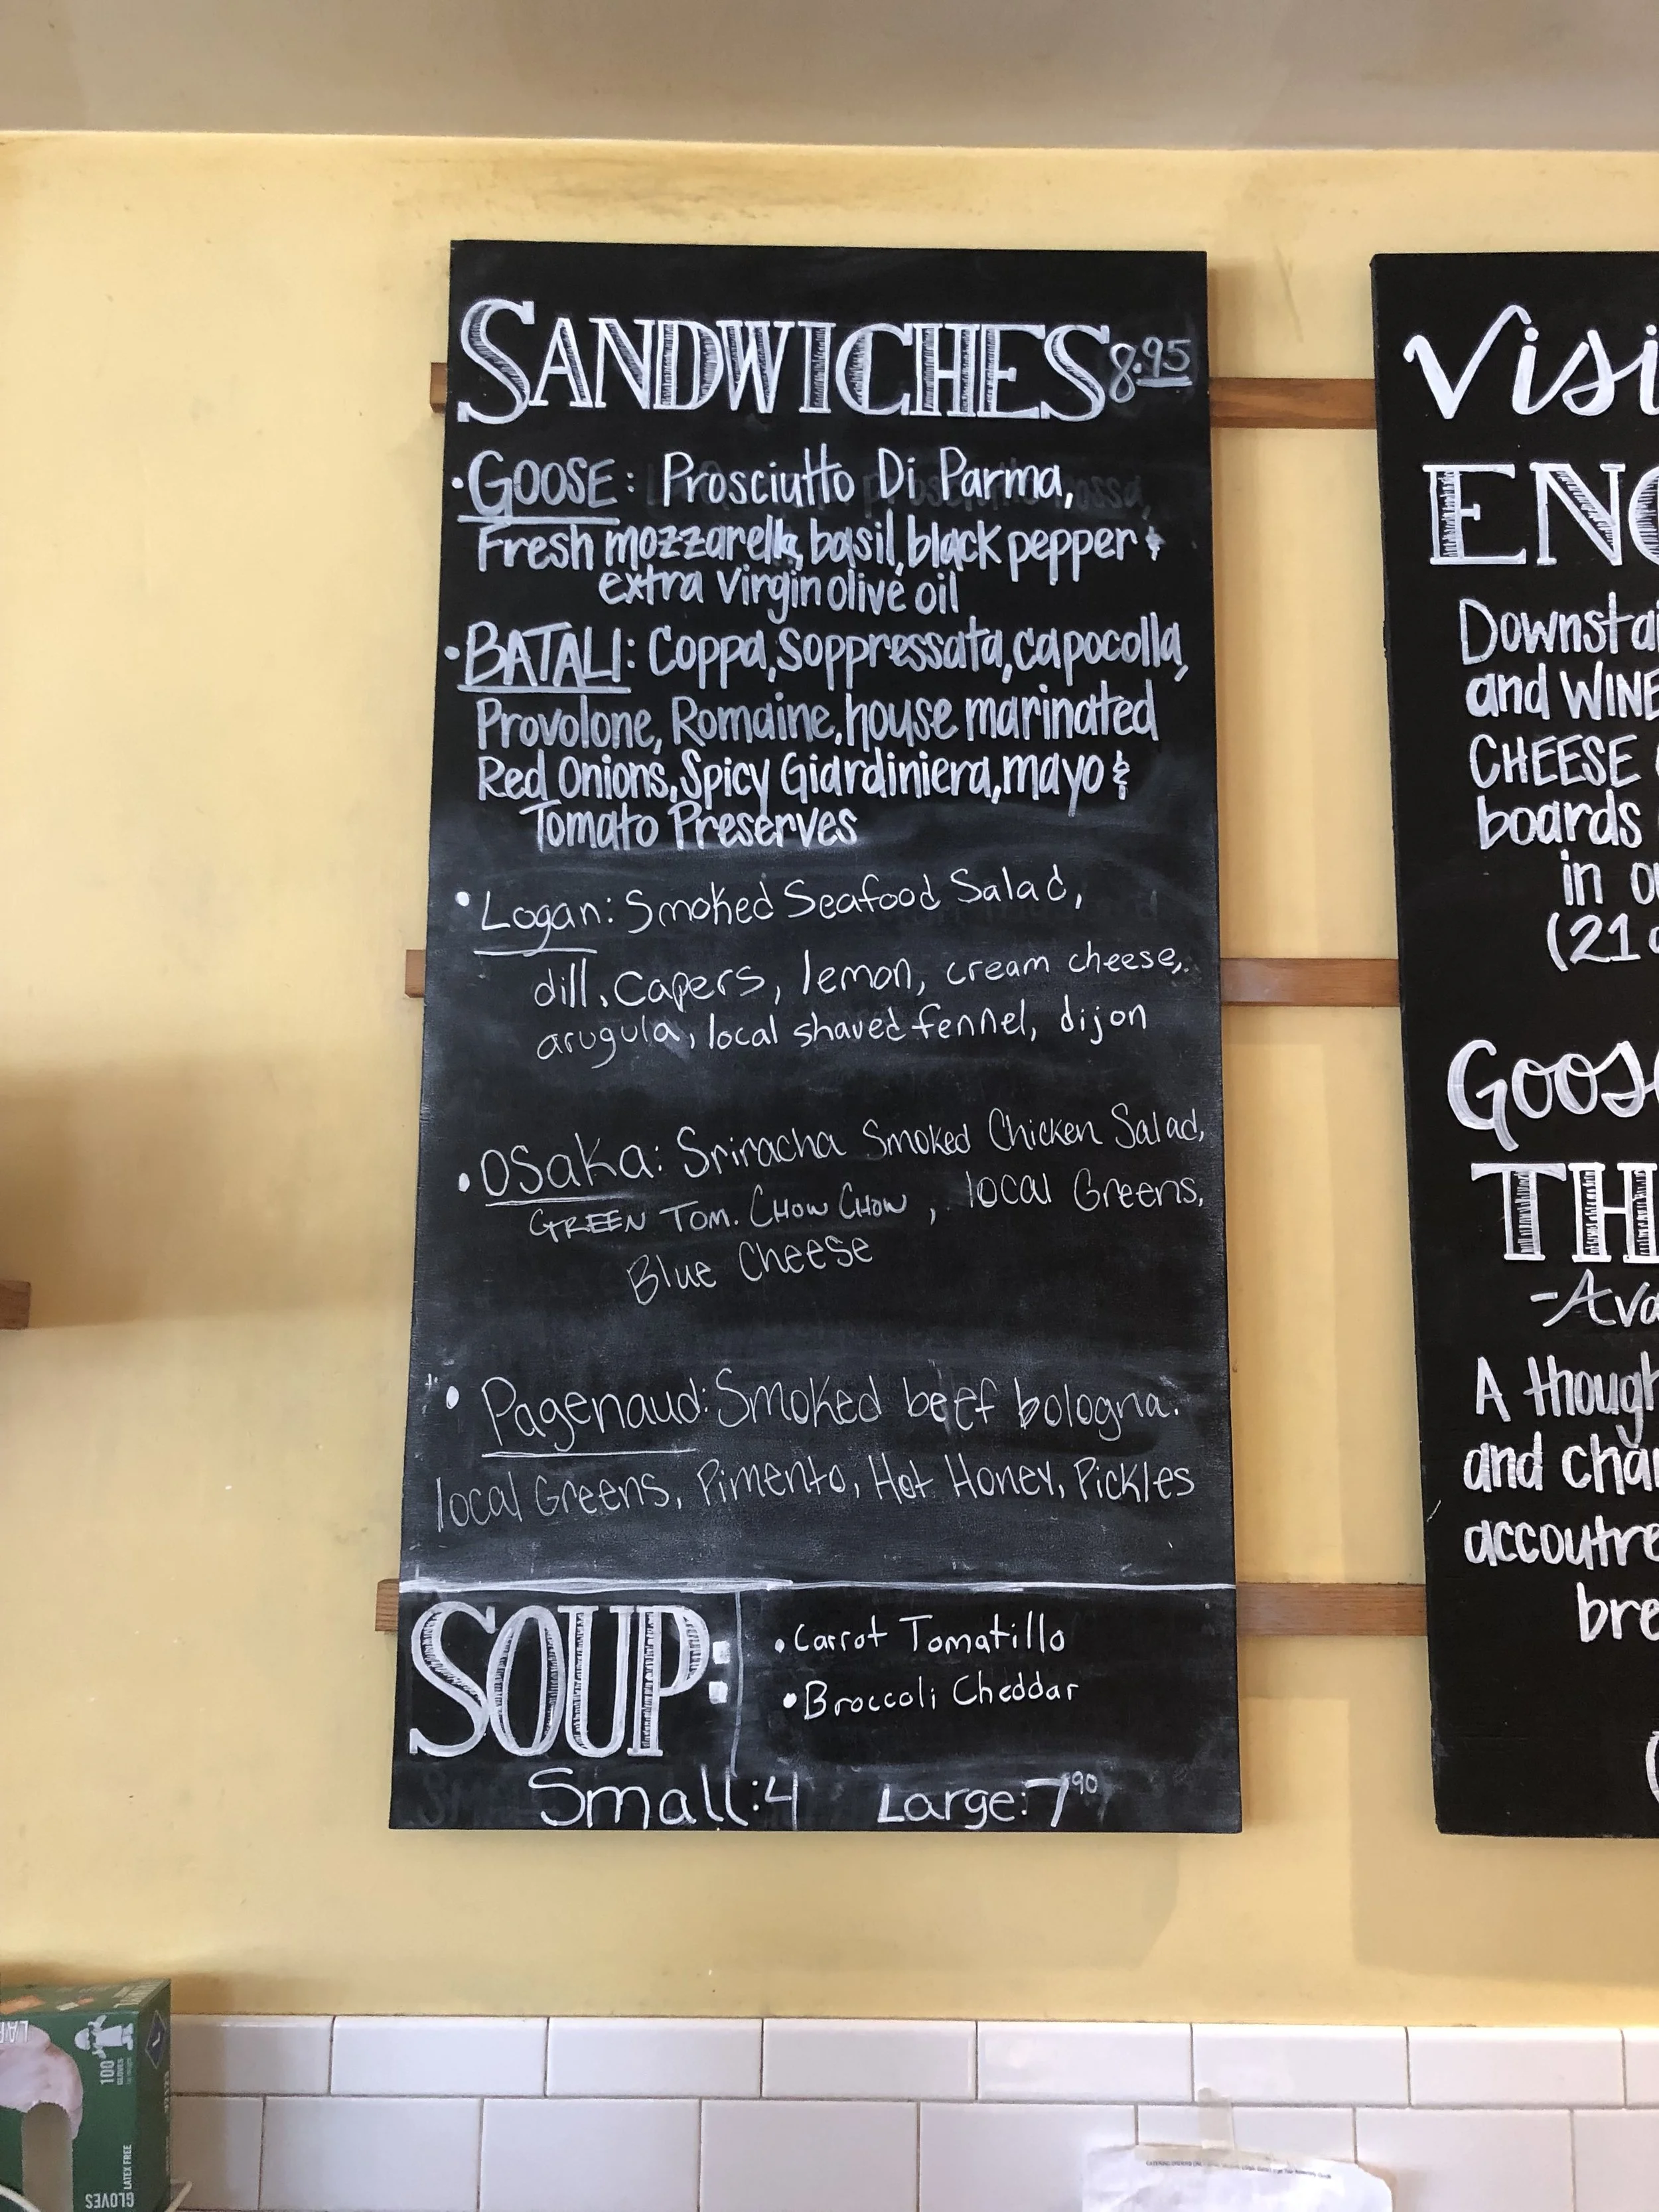 SANDWICHES 8.95
• GOOSE: Prosciutto Di Parma,
Fresh mozzarella, basil, black pepper &
extra virgin olive oil
• BATALI: Coppa, Soppressata, capocolla,
Provolone, Romaine, house marinated
Red Onions, Spicy Giardiniera, mayo &
Tomato Preserves
• Logan: Smoked Seafood Salad,
dill, Capers, lemon, cream cheese,
arugula, local shaved fennel, dijon
• Osaka: Sriracha Smoked Chicken Salad,
GREEN TOM. CHOW CHOW, local Greens,
Blue Cheese
• Pagenaud: Smoked beef bologna.
local Greens, Pimento, Hot Honey, Pickles
SOUP:
• Carrot Tomatillo
• Broccoli Cheddar
Small: 4 Large: 7 90
Visi
ENO
Downstai
and WINE
CHEESE
boards
in
(21
Goose
TH
-Ava
A though
and char
accoutre
bre
100
GLOVES
LATEX FREE
GLOVES